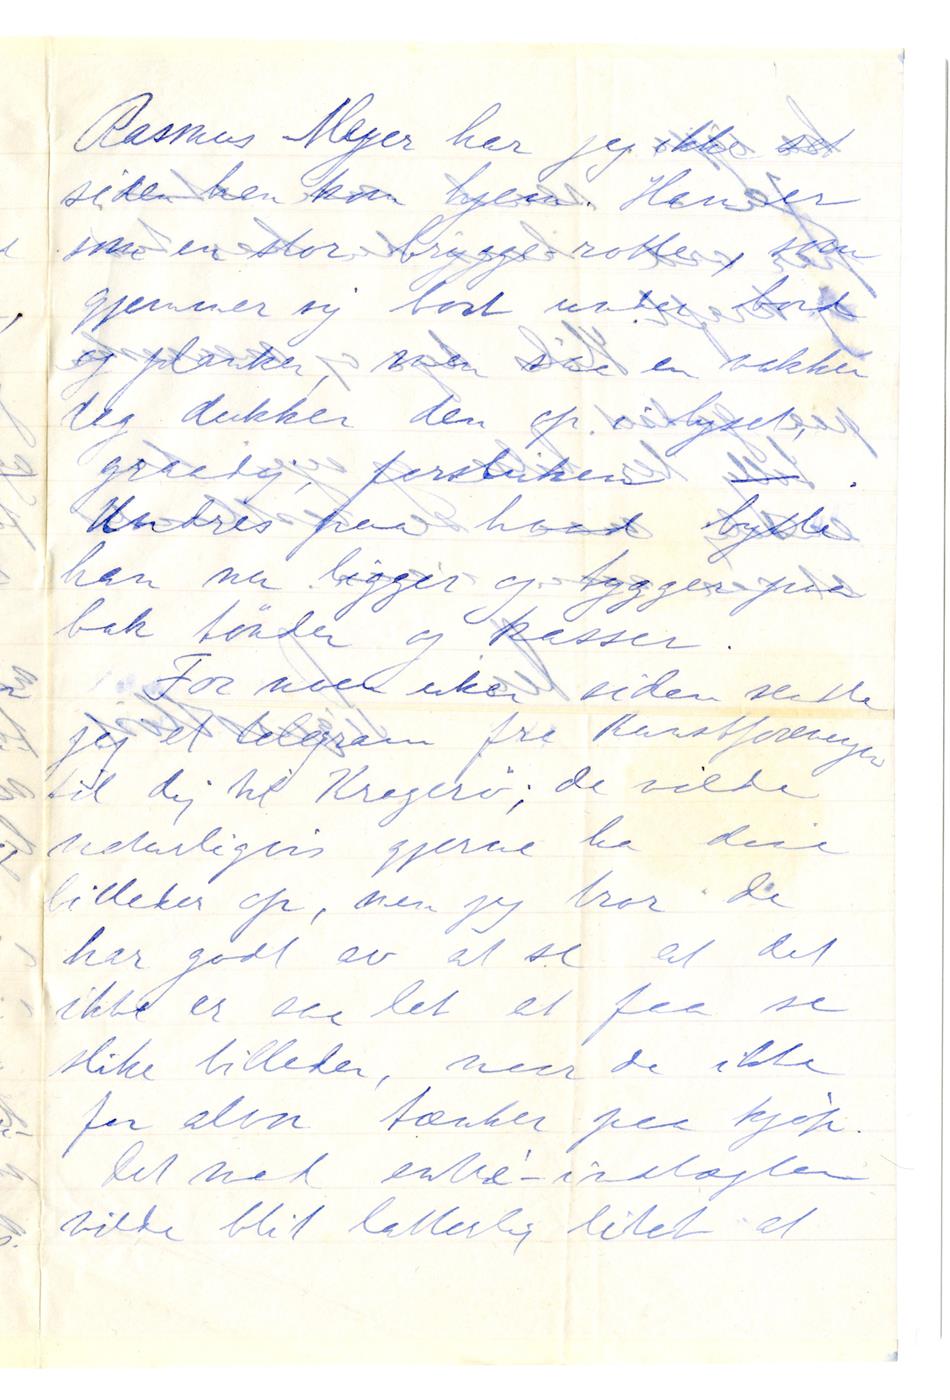 Rasmus Meyer har jeg ikke set
siden han kom hjem. Han er
som en stor bryggerotte, som
gjemmer sig bort under bord
og planker, men saa en vakker
dag dukker den op i lyset,
graadig, forsluken.
Undres paa hvad bytte
han nu ligger og tygger paa
bak tönder og kasser.
For noen uker siden sendte
jeg et telegram fra Kunstforeningen
til dig til Kragerö; de vilde
naturligvis gjerne ha dine
billeder op, men jeg tror de
har godt av at se at det
ikke er saa let at faa se
slike billeder, naar de ikke
for alvor tænker paa kjöp.
Det med entré-indtægten
vilde blit latterlig litet at